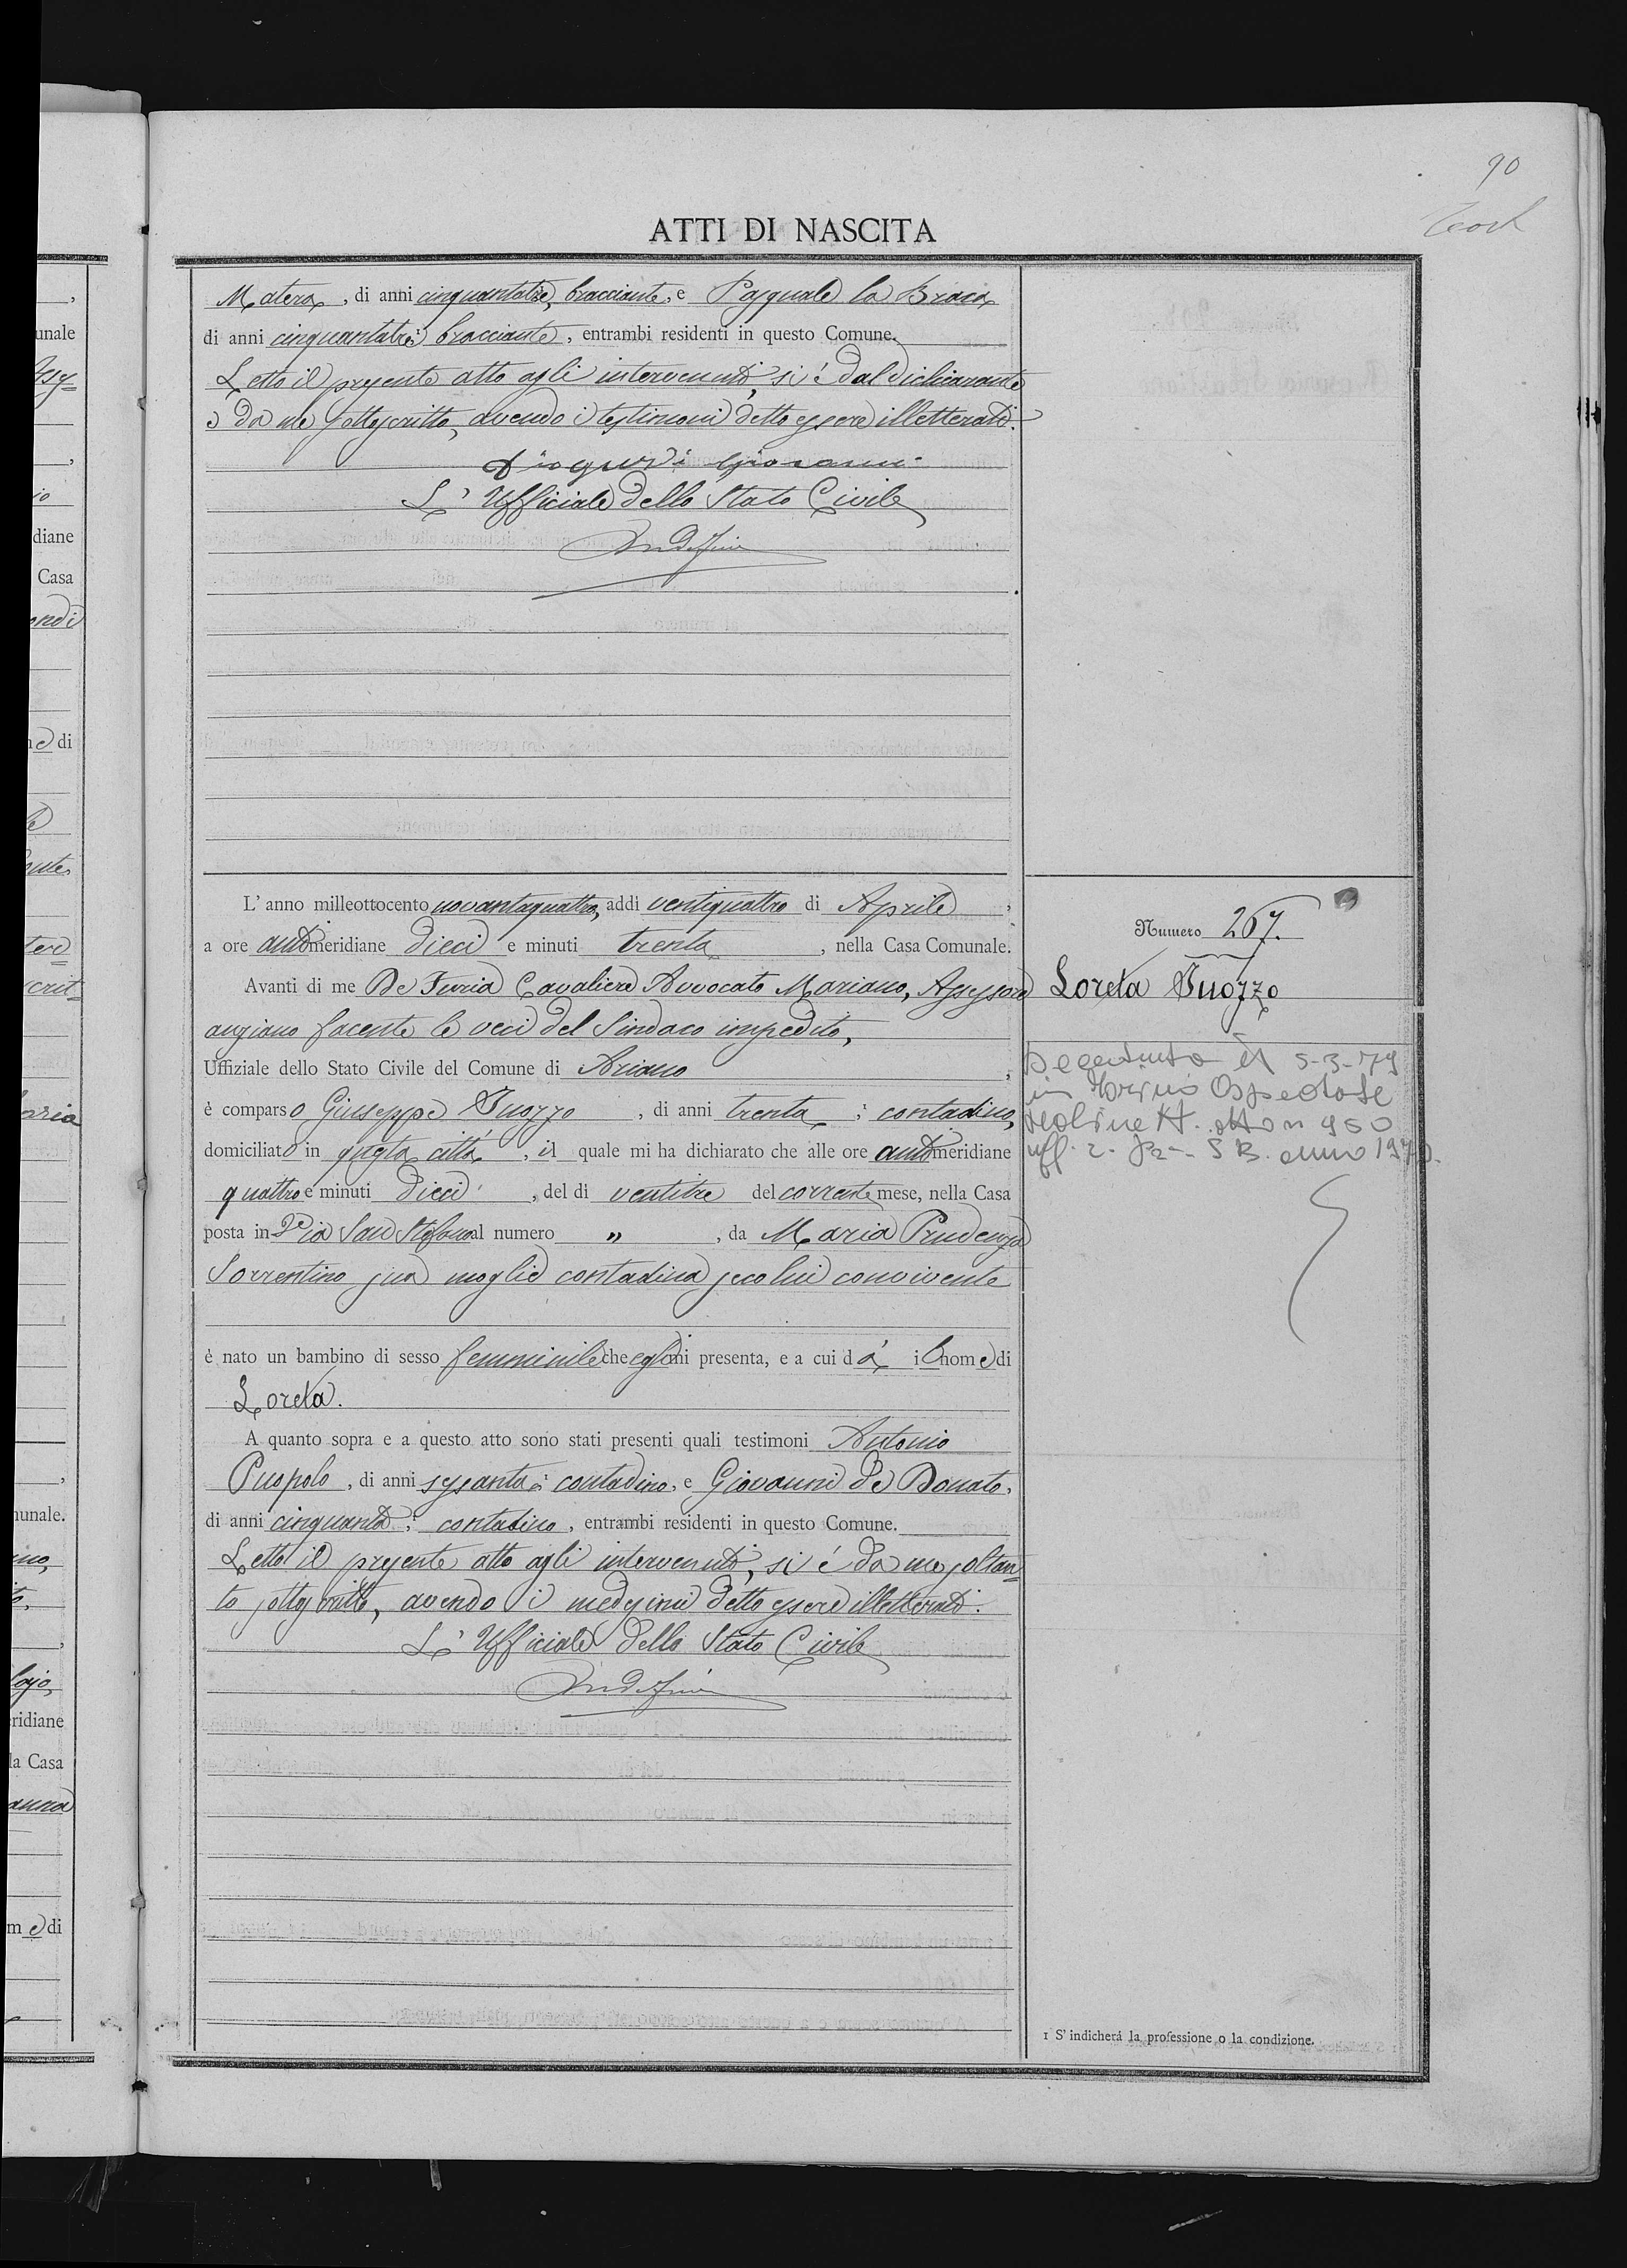 90
ATTI DI NASCITA
Matera, di anni cinquantatre, bracciante, e Pasquale la Braca
di anni cinquantatre; bracciante, entrambi residenti in questo Comune.
Letto il presente atto agli intervenuti, si è dal dichiarante
e da me sottoscritto, avendo i testimoni detto essere illetterati.
Giovanni
L' Ufficiale dello Stato Civile
L' anno milleottocento novantaquattro, addì ventiquattro di Aprile,
a ore antimeridiane dieci e minuti trenta, nella Casa Comunale.
Avanti di me De Furia Cavaliere Avvocato Mariano, Assessore
anziano facente le veci del Sindaco impedito,
Uffiziale dello Stato Civile del Comune di Ariano,
è comparso Giuseppe Iuozzo, di anni trenta; contadino,
domiciliato in questa città, il quale mi ha dichiarato che alle ore antimeridiane
quattro e minuti dieci, del dì ventitre del corrente mese, nella Casa
posta in Via San Stefano al numero „, da Maria Prudenza
Sorrentino sua moglie contadina seco lui convivente
è nato un bambino di sesso femminile che egli mi presenta, e a cui dà il nome di
Loreta.
A quanto sopra e a questo atto sono stati presenti quali testimoni Antonio
Puopolo, di anni sessanta; contadino, e Giovanni de Donato,
di anni cinquanta; contadino, entrambi residenti in questo Comune.
Letto il presente atto agli intervenuti, si è da me soltan=
to sottoscritto, avendo i medesimi detto essere illetterati.
L' Ufficiale dello Stato Civile
Numero 267.
Loreta Iuozzo
Deceduta il 5-3-79
in Torino Ospedale
Molinett. atto n 950
uff. 2. P2-. S B. anno 1979.
1 S' indicherà la professione o la condizione.